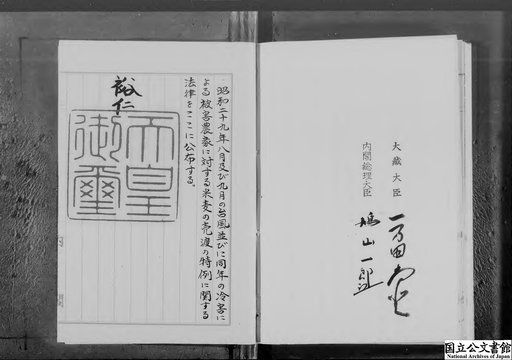 昭和二十九年八月及び九月の台風並びに同年の冷害に
よる被害農家に対する米麦の売渡の特例に関する
法律をここに公布する。
裕仁
天皇
御璽
大蔵大臣
内閣総理大臣
鳩山一郎
国立公文書館
National Archives of Japan